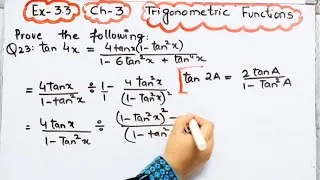 Ex-3.3 Ch-3 Trigonometric Functions
Prove the following:
Q23: tan 4x = 4tanx(1-tan²x) / 1-6tan²x+tan⁴x
= 4tanx / 1-tan²x ÷ 1- 4tan²x / (1-tan²x)²
[tan 2A = 2tanA / 1-Tan²A
= 4tanx / 1-Tan²x ÷ (1-tan²x)² - / (1-tan²